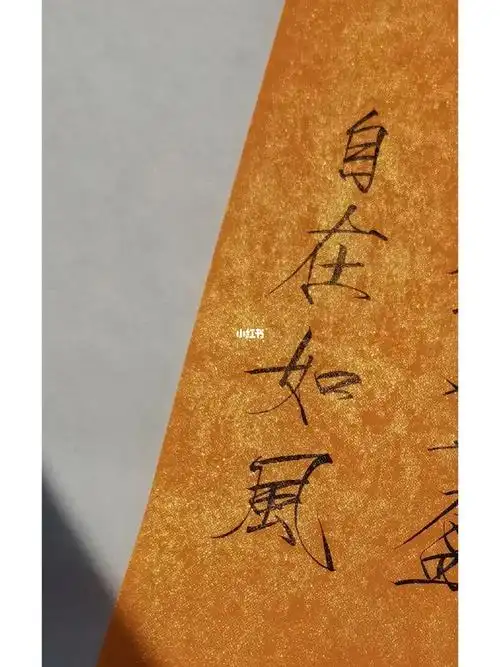 自在如風
小红书